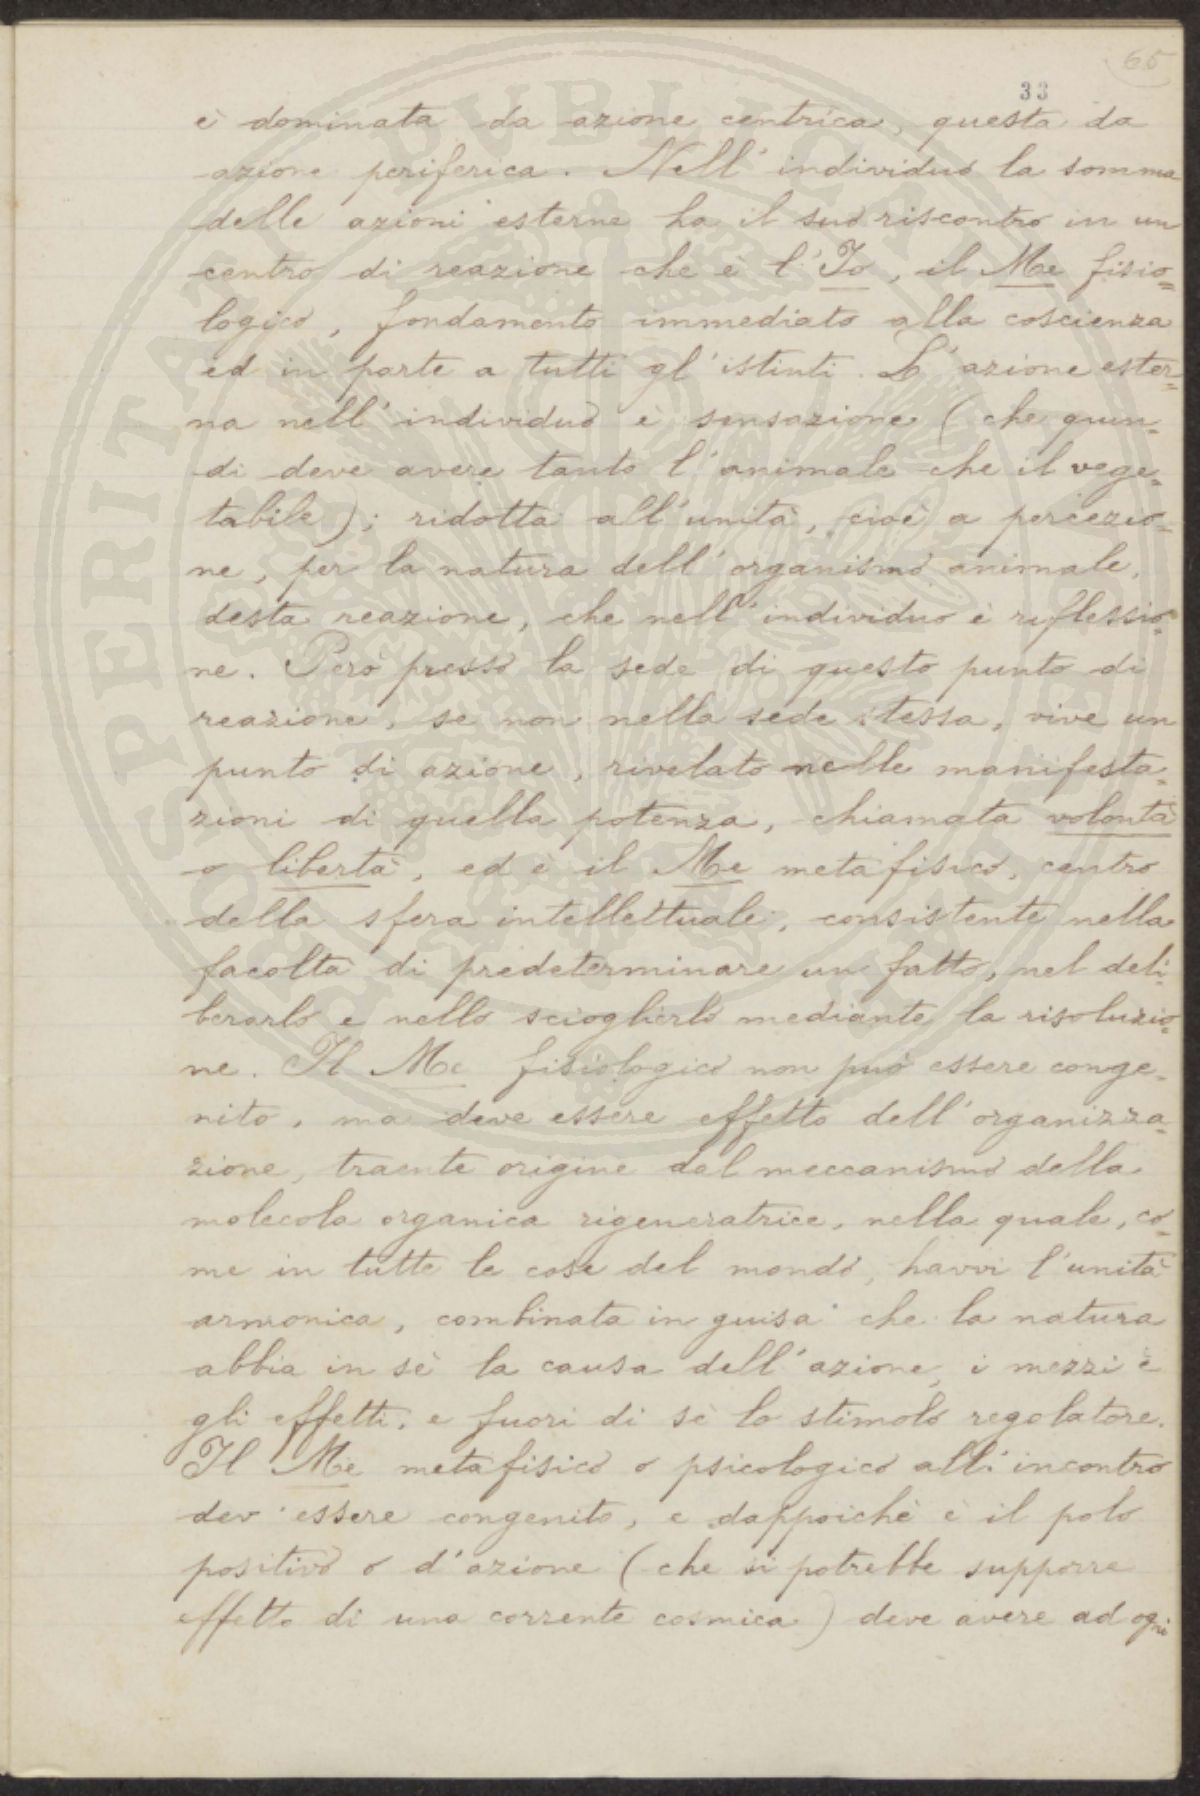 65
33
è dominata da azione centrica, questa da
azione periferica. Nell' individuo la somma
delle azioni esterne ha il suo riscontro in un
centro di reazione che è l'Io, il Me fisio=
logico, fondamento immediato alla coscienza
ed in parte a tutti gl' istinti. L' azione ester=
na nell' individuo è sensazione (che quin=
di deve avere tanto l' animale che il vege=
tabile); ridotta all' unità, cioè a percezio=
ne, per la natura dell' organismo animale,
desta reazione, che nell' individuo è riflessio=
ne. Però presso la sede di questo punto di
reazione, se non nella sede stessa, vive un
punto di azione, rivelato nelle manifesta=
zioni di quella potenza, chiamata volontà
o libertà, ed è il Me metafisico, centro
della sfera intellettuale, consistente nella
facoltà di predeterminare un fatto, nel deli=
berarlo e nello scioglierlo mediante la risoluzio=
ne. Il Me fisiologico non può essere conge=
nito, ma deve essere effetto dell' organizza=
zione, traente origine dal meccanismo della
molecola organica rigeneratrice, nella quale, co=
me in tutte le cose del mondo, havvi l' unità
armonica, combinata in guisa che la natura
abbia in sè la causa dell' azione, i mezzi e
gli effetti, e fuori di sè lo stimolo regolatore.
Il Me metafisico o psicologico all' incontro
dev' essere congenito, e dappoichè è il polo
positivo o d' azione (che si potrebbe supporre
effetto di una corrente cosmica) deve avere ad ogni
PROSPERITATI PUBLICAE